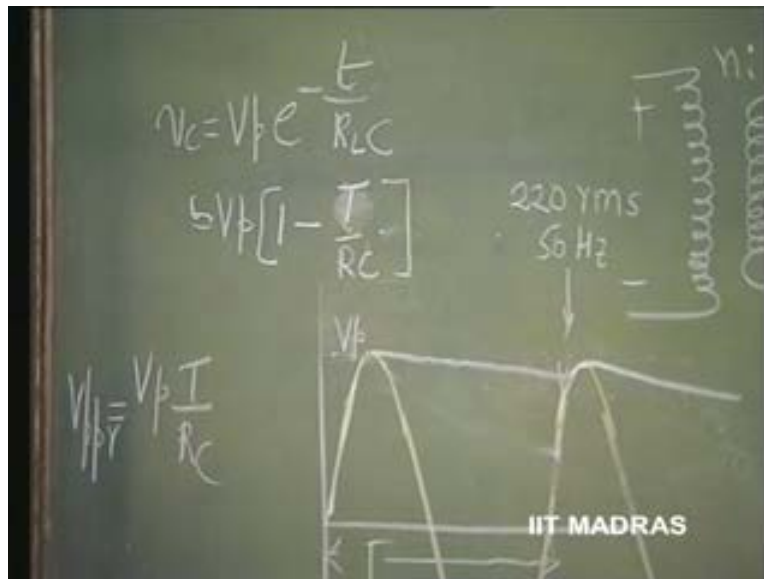 v_C = Vp e^{-t/R_LC}
≈ Vp[1 - T/RC]
ni
220 rms
50 Hz
+
-
Vp
Vppr = Vp T/RC
T
IIT MADRAS